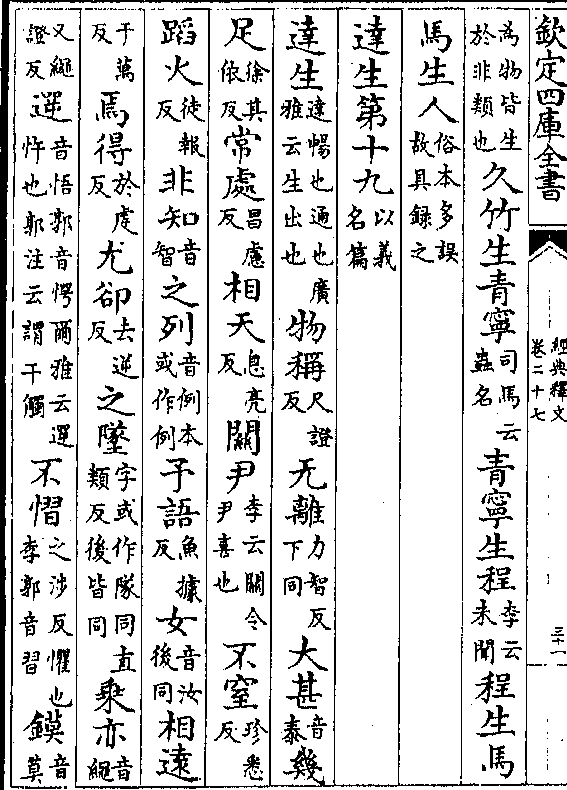 欽定四庫全書
經典釋文
卷二十七
三十一
為物皆生於非類也久竹生青寧司馬云蟲名青寧生程李云未聞程生馬
馬生人俗本多誤故具錄之
達生第十九以義名篇
達生達暢也通也廣雅云生出也物稱尺證反无離力智反下同大甚音泰幾
足徐其依反常處昌慮反相天息亮反關尹李云關令尹喜也不窒珍悉反
蹈火徒報反非知音智之列音例本或作例予語魚據反女音汝後同相遠
于萬反焉得於虔反尤卻去逆反之墜字或作隊同直類反後皆同乘亦音繩
又繩證反遻音悟郭音愕爾雅云遻忤也郭注云謂干觸不慴之涉反懼也李郭音習鏌音莫